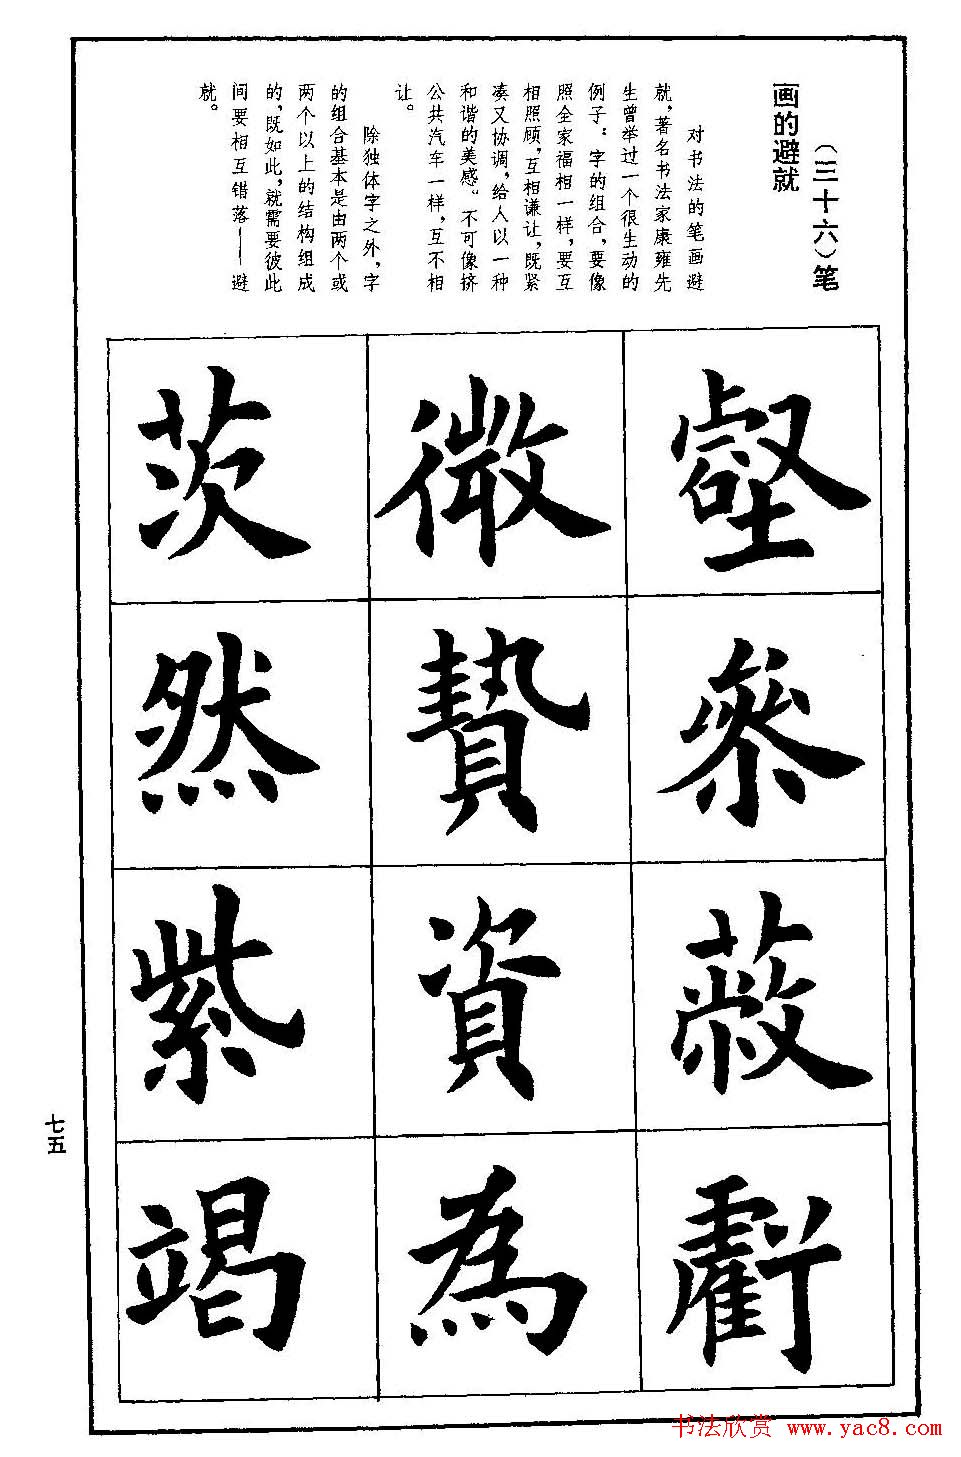 （三十六）笔
画的避就
对书法的笔画避
就，著名书法家康雍先
生曾举过一个很生动的
例子：字的组合，要像
照全家福相一样，要互
相照顾，互相谦让，既紧
凑又协调，给人以一种
和谐的美感。不可像挤
公共汽车一样，互不相
让。
除独体字之外，字
的组合基本是由两个或
两个以上的结构组成
的，既如此，就需要彼此
间要相互错落——避
就。
壑參蔽虧
微贄資為
茨然紫竭
七五
书法欣赏 www.yac8.com